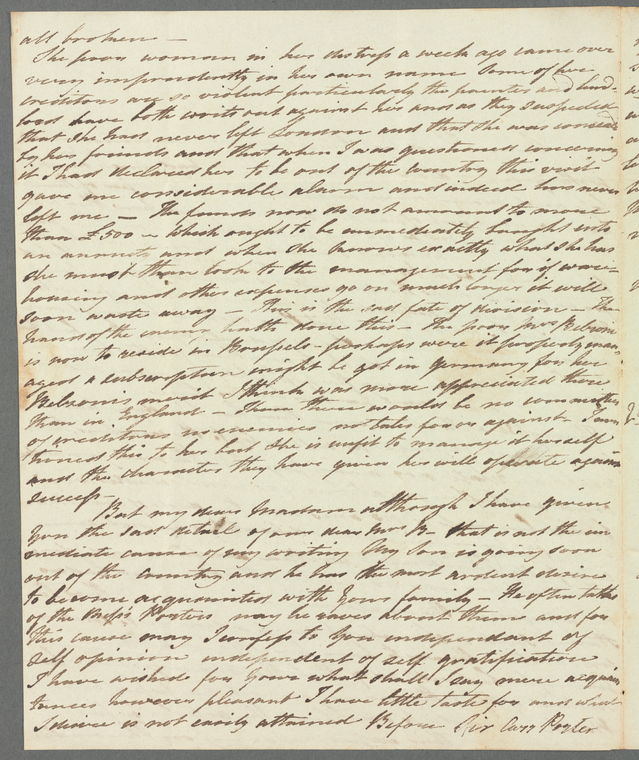 all broken —
The poor woman in her distress a week ago came over
very imprudently in her own name Some of her
creditors are so violent particularly the painter and land-
lord have both writs out against her and as they suspected
that she had never left London and that she was
by her friends and that when I was questioned concerning
it I had declared her to be out of the country this visit
gave me considerable alarm and indeed has never
left me — The funds now do not amount to more
than £500 — which ought to be immediately bought into
an annuity and when she knows exactly what she has
she must then look to the management for if ware-
housing and other expenses go on much longer it will
soon waste away — This is the sad fate of division — The
hand of the enemy hath done this — The poor Mrs
is now to reside in — perhaps were it properly man-
aged a subscription might be got in Germany for her
merit I think was more appreciated there
than in England — There there would be no committee
of creditors no enemies no tales for or against — I men-
tioned this to her but she is unfit to manage it herself
and the character they have given her will operate against
success —
But my dear Madam although I have given
you the sad detail of our dear Mrs that is not the im
mediate cause of my writing My Son is going soon
out of the country and he has the most ardent desire
to become acquainted with your family — He often talks
of the Miss Porters nay he raves about them and for
this cause may I confess to you independant of
self opinion independent of self gratification
I have wished for yours what shall I say mere acquain
tances however pleasant I have little taste for and what
I desire is not easily attained Before Sir Porter